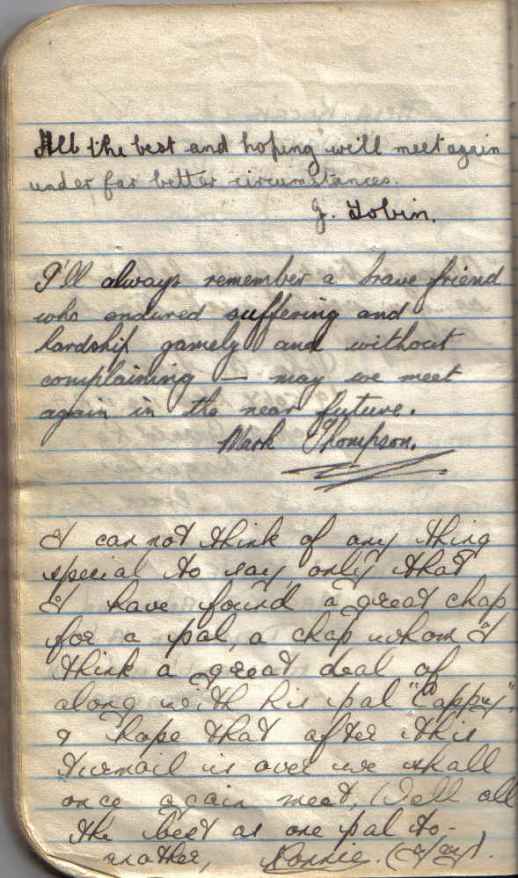 All the best and hoping we'll meet again
under far better circumstances.
J. Tobin.
I'll always remember a brave friend
who endured suffering and
hardship gamely and without
complaining — may we meet
again in the near future.
Mark Thompson.
I can not think of any thing
special to say, only that
I have found a great chap
for a pal, a chap whom I
think a great deal of
along with his pal "Cappy".
I hope that after this
turmoil is over we shall
once again meet, Well all
the best as one pal to-
another, Ronnie.